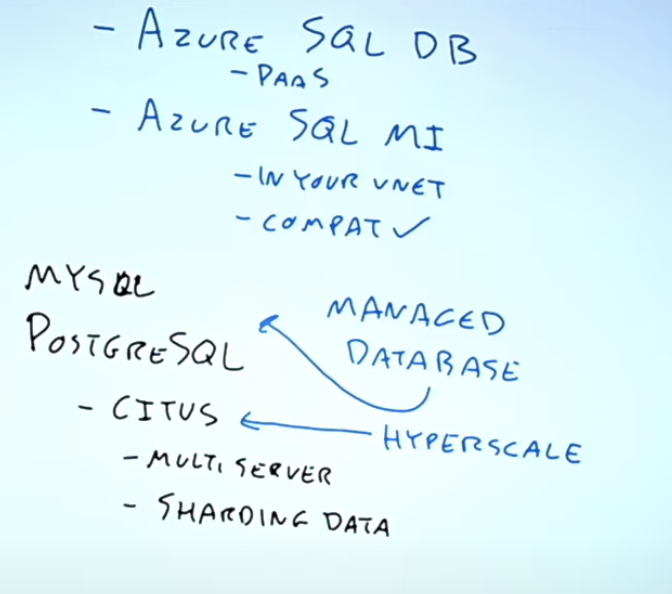 - AZURE SQL DB
- PAAS
- AZURE SQL MI
- IN YOUR VNET
- COMPAT ✓
MYSQL
POSTGRESQL
- CITUS
- MULTI SERVER
- SHARDING DATA
MANAGED
DATABASE
HYPERSCALE